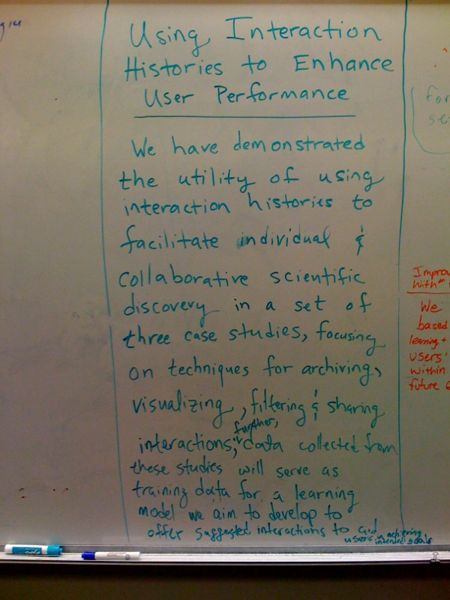 Using Interaction
Histories to Enhance
User Performance
We have demonstrated
the utility of using
interaction histories to
facilitate individual &
collaborative scientific
discovery in a set of
three case studies, focusing
on techniques for archiving,
visualizing, filtering & sharing
further,
interactions; data collected from
these studies will serve as
training data for a learning
model we aim to develop to
offer suggested interactions to aid
users in achieving
intended goals
for
se
Improv
With
We
based
learning +
users'
within
future